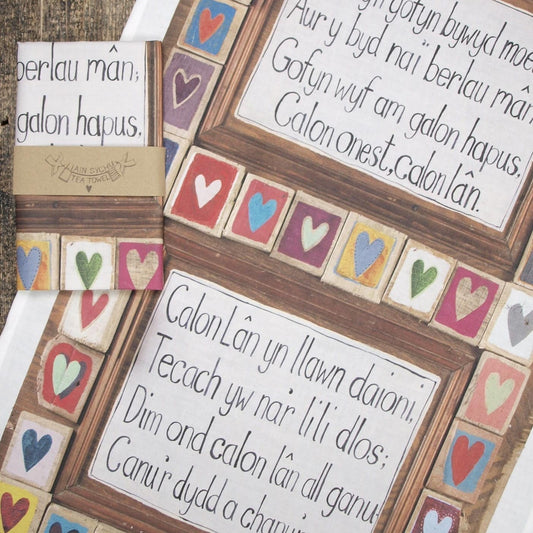 berlau mân;
galon hapus,
LLIAIN SYCHU
TEA TOWEL
gofyn bywyd moe
Aur y byd na'i berlau mân
Gofyn wyf am galon hapus,
Calon onest, Calon lân.
Calon Lân yn llawn daioni,
Tecach yw na'r lili dlos;
Dim ond calon lân all ganu
Canu'r dydd a chanu'r